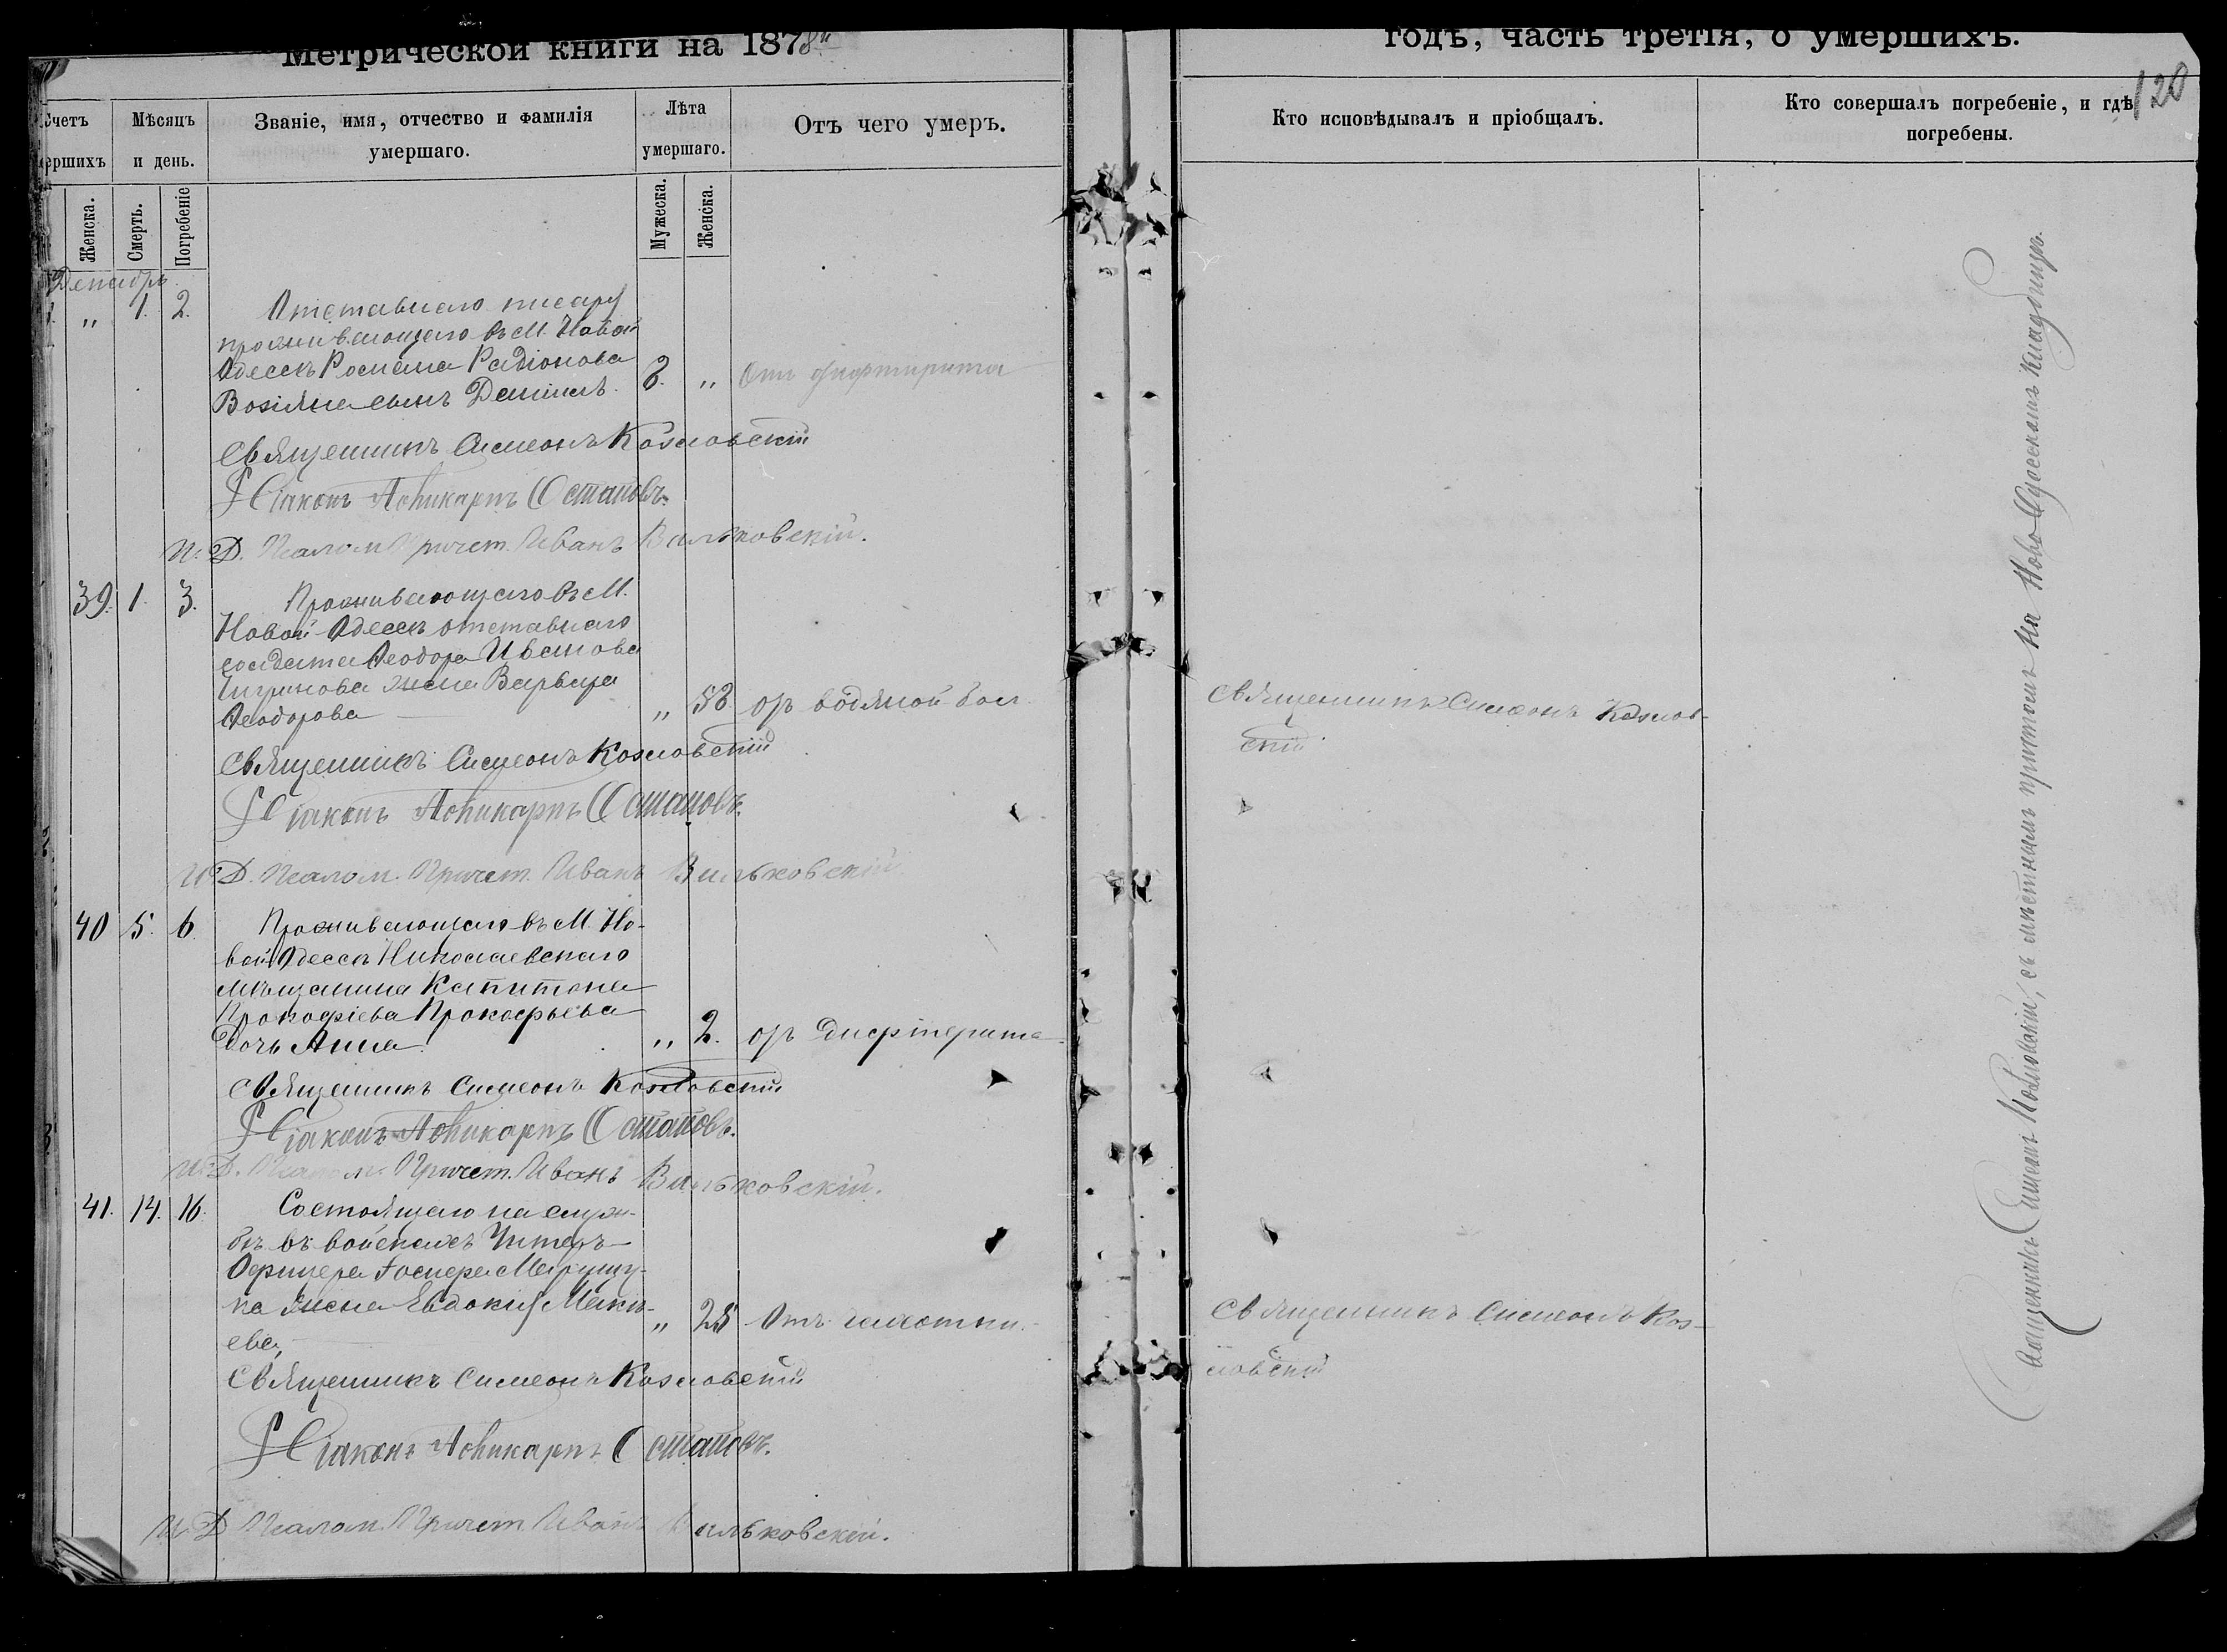 Метрической книги на 1878й
годъ, часть третія, о умершихъ.
120
Счетъ умершихъ
Мѣсяцъ и день.
Званіе, имя, отчество и фамилія умершаго.
Лѣта умершаго.
Отъ чего умеръ.
Кто исповѣдывалъ и пріобщалъ.
Кто совершалъ погребеніе, и гдѣ погребены.
Женска.
Смерть.
Погребеніе
Мужеска.
Женска.
Декабрь
„ 1. 2.
Отставнаго писаря
проживающаго въ М. Новой
Одессѣ Романа Радіонова
Возіяна сынъ Даніилъ. „ Отъ
Священникъ Симеонъ Козловскій
Діаконъ Поликарпъ Остаповъ.
И. Д. Псалом. Причет. Иванъ Вильковскій.
39. 1. 3.
Проживающаго въ М.
Новой Одессѣ отставнаго
солдата Ѳеодора Иванова
жена Варвара
Ѳеодорова „ 58. отъ водяной бол.
Священникъ Симеонъ Козлов-
скій
Священникъ Симеонъ Козловскій
Діаконъ Поликарпъ Остаповъ.
И. Д. Псалом. Причет. Иванъ Вильковскій
40 5. 6
Проживающаго въ М. Но-
вой Одессѣ Николаевскаго
мѣщанина Капитона
Прокофіева Прокофьева
дочь Анна. „ 2. отъ дифтерита
Священникъ Симеонъ Козловскій
Діаконъ Поликарпъ Остаповъ.
И. Д. Псалом. Причет. Иванъ Вильковскій.
41. 14. 16.
Состоящаго на служ-
бѣ въ войскахъ Унтеръ-
Офицера
ка жена Евдокія
ева „ 25 Отъ чахотки.
Священникъ Симеонъ Коз-
ловскій
Священникъ Симеонъ Козловскій
Діаконъ Поликарпъ Остаповъ.
И. Д. Псалом. Причет. Иванъ Вильковскій.
Священникъ Симеонъ Козловскій, съ мѣстнымъ причтомъ на Ново-Одесскомъ кладбищѣ.